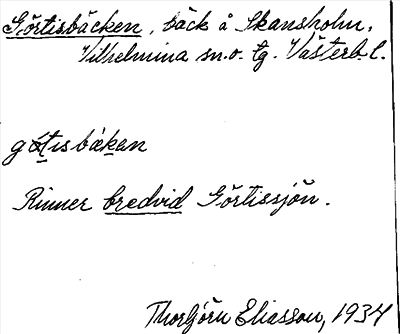 Görtisbäcken, bäck å Skansholm,
Vilhelmina sn. o. tg. Västerb. l.
gö̱ṯısbäḵan
Rinner bredvid Görtissjön.
Thorbjörn Eliasson, 1934